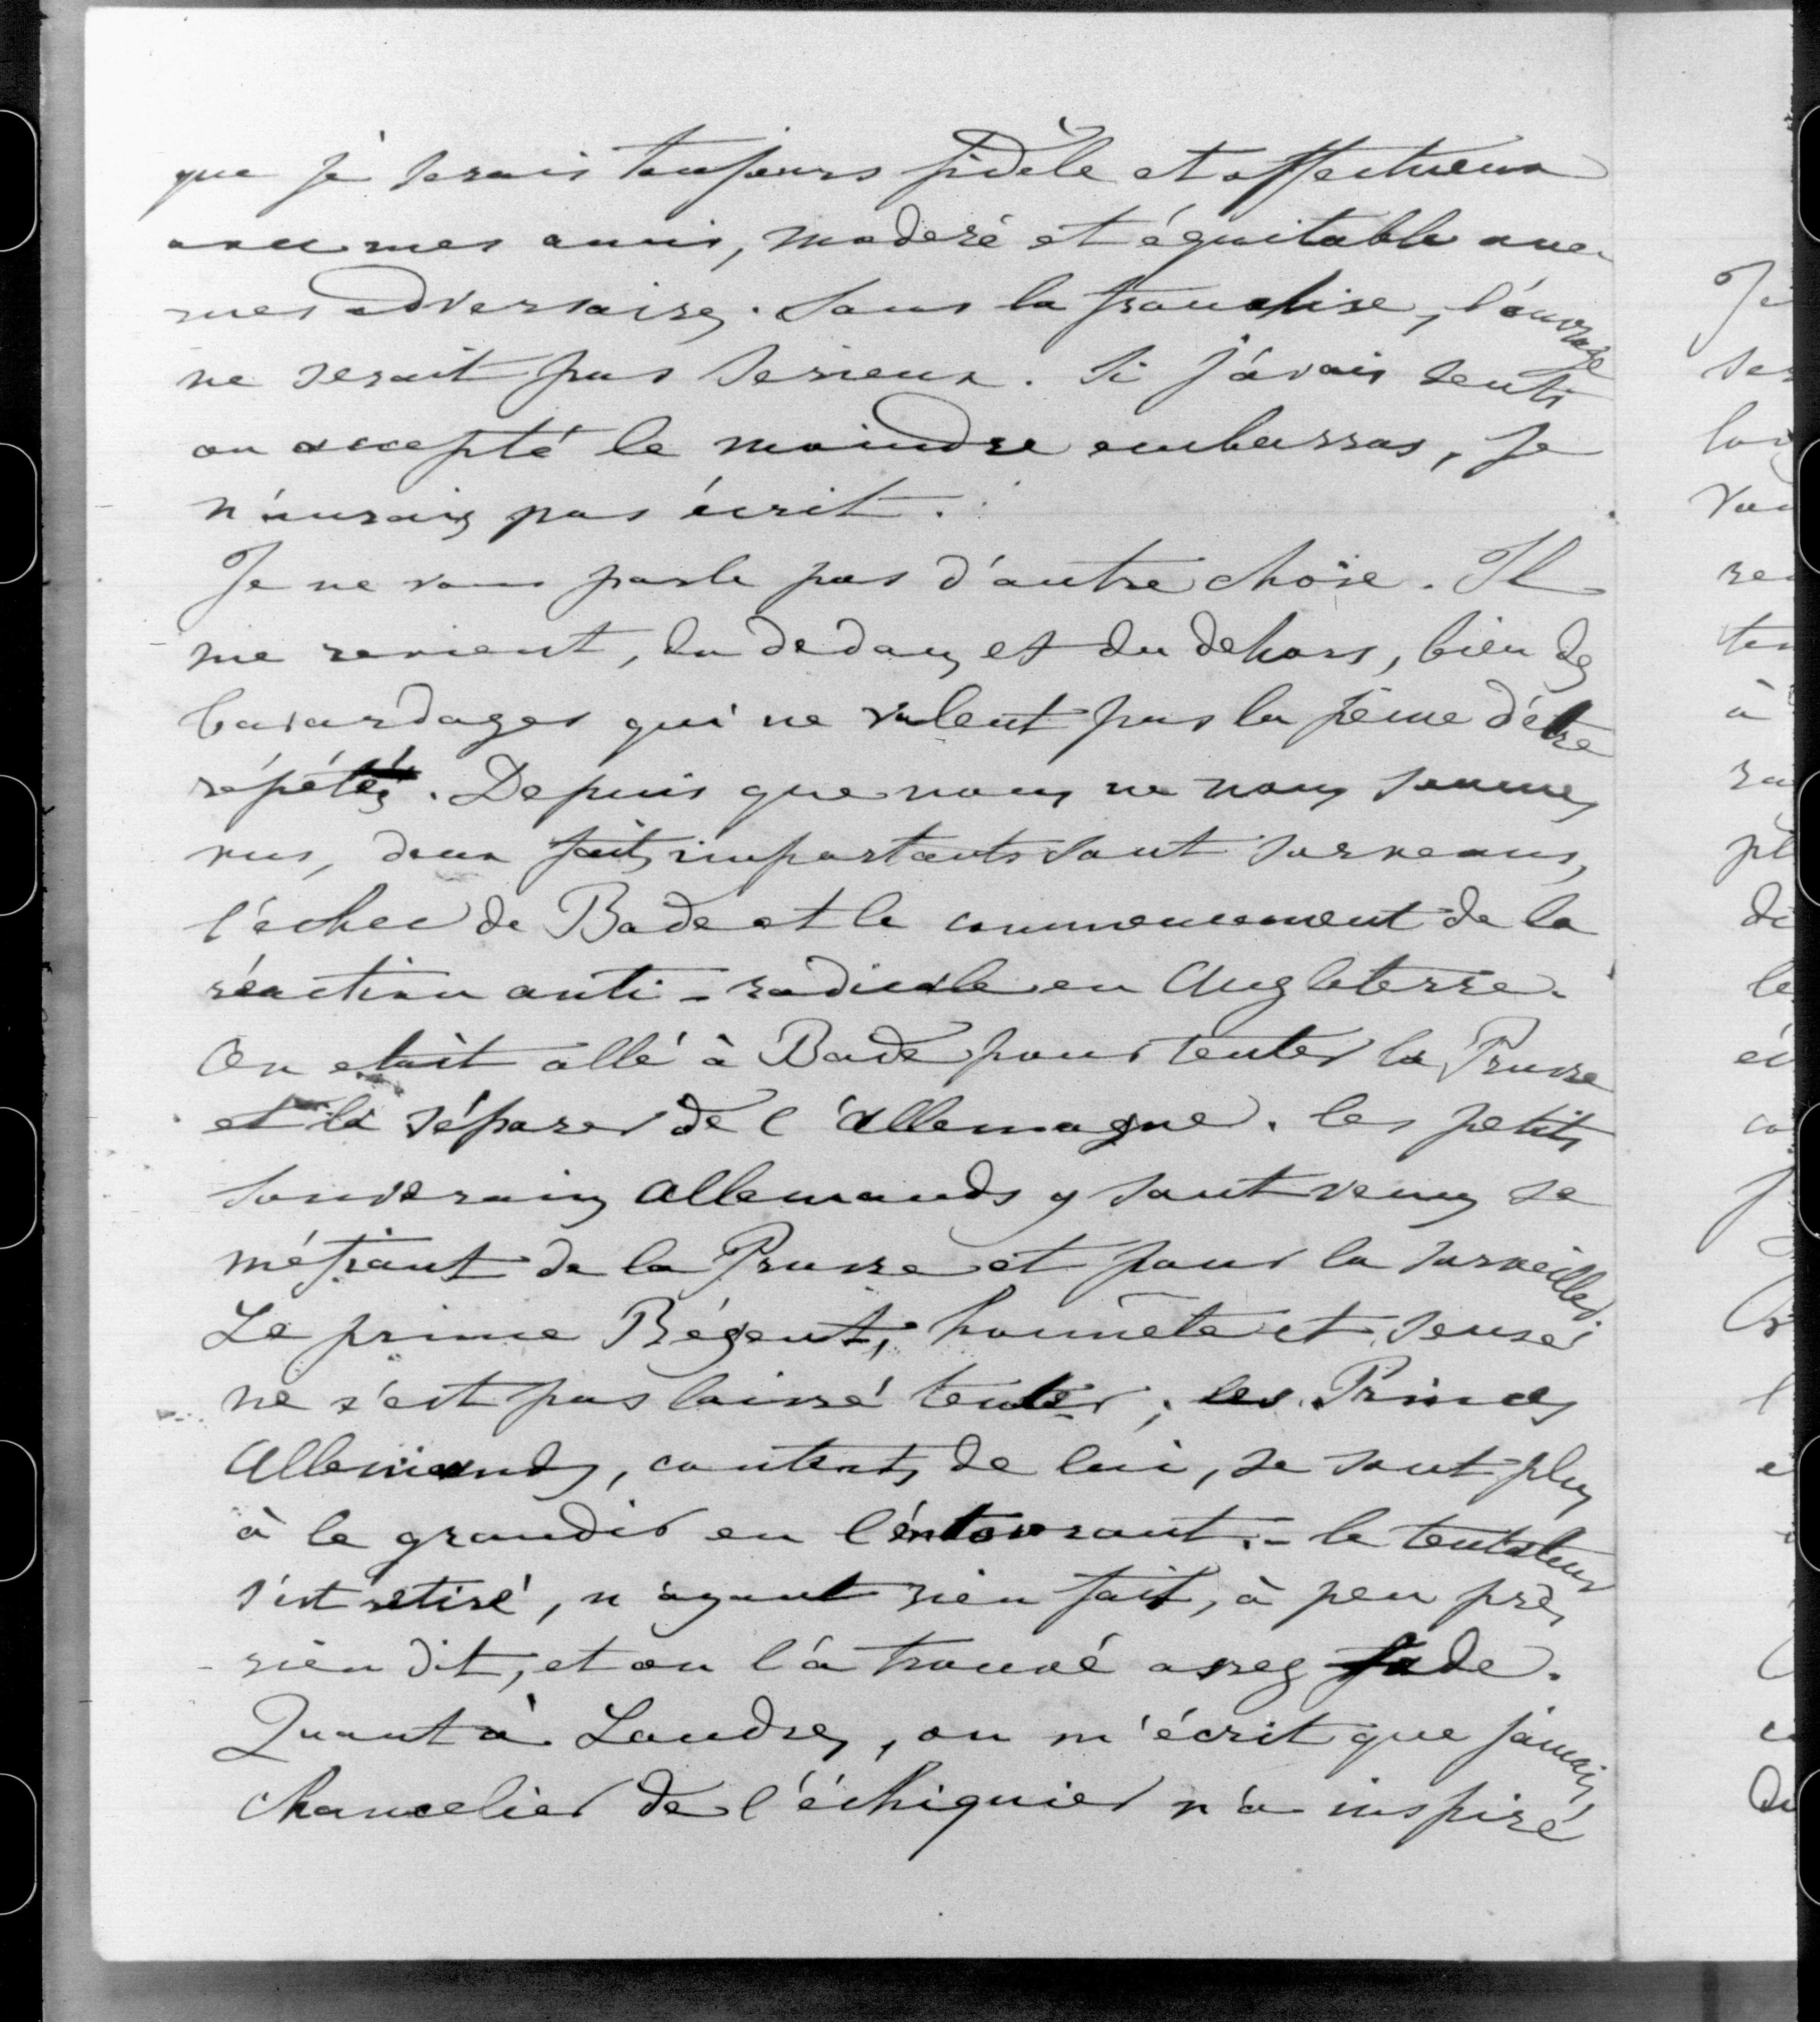 que je serais toujours fidèle et affectueux
avec mes amis, moderé et équitable avec
mes adversaires. Sans la franchise, l'ouvrage
ne serait pas serieux. Si j'avais senti
ou accepté le moindre embarras, je
n'aurais pas écrit.
Je ne vous parle pas d'autre chose. Il
me revient, du dedans et du dehors, bien des
bavardages qui ne valent pas la peine d'être
répétés. Depuis que nous ne nous sommes
vus, deux faits importants sont survenus,
l'échec de Bade et le commencement de la
réaction anti-radicale en Angleterre.
On etait allé à Bade pour tenter la Prusse
et la séparer de l'Allemagne. les petits
souverains allemands y sont venus se
méfiant de la Prusse et pour la surveiller.
Le prince Régent, honnête et sensé
ne s'est pas laissé tenter; les Princes
Allemands, contents de lui, se sont plus
à le grandir en l'entourant. - le tentateur
s'est retiré, n'ayant rien fait, à peu près
rien dit, et on l'a trouvé assez fade.
Quant à Londres, on m'écrit que jamais
chancelier de l'échiquier n'a inspiré